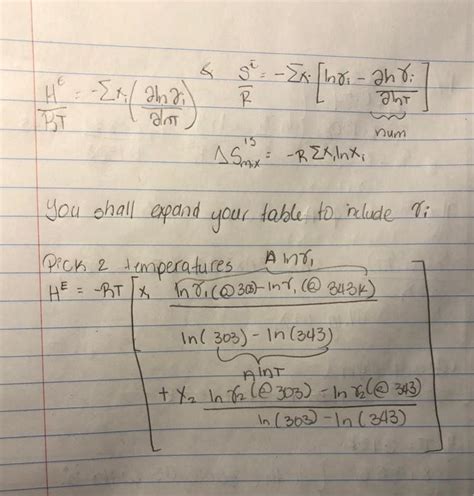 H^E/RT = -Σx_i (∂lnγ_i/∂lnT) & S^E/R = -Σx_i [lnγ_i - ∂lnγ_i/∂lnT]
num
ΔS^is_mix = -RΣx_i ln x_i
You shall expand your table to include γ_i
Pick 2 temperatures Δlnγ_1
H^E = -RT [x_1 (lnγ_1(@303) - lnγ_1(@343K))
ln(303) - ln(343)
ΔlnT
+ x_2 (lnγ_2(@303) - lnγ_2(@343))
ln(303) - ln(343)]